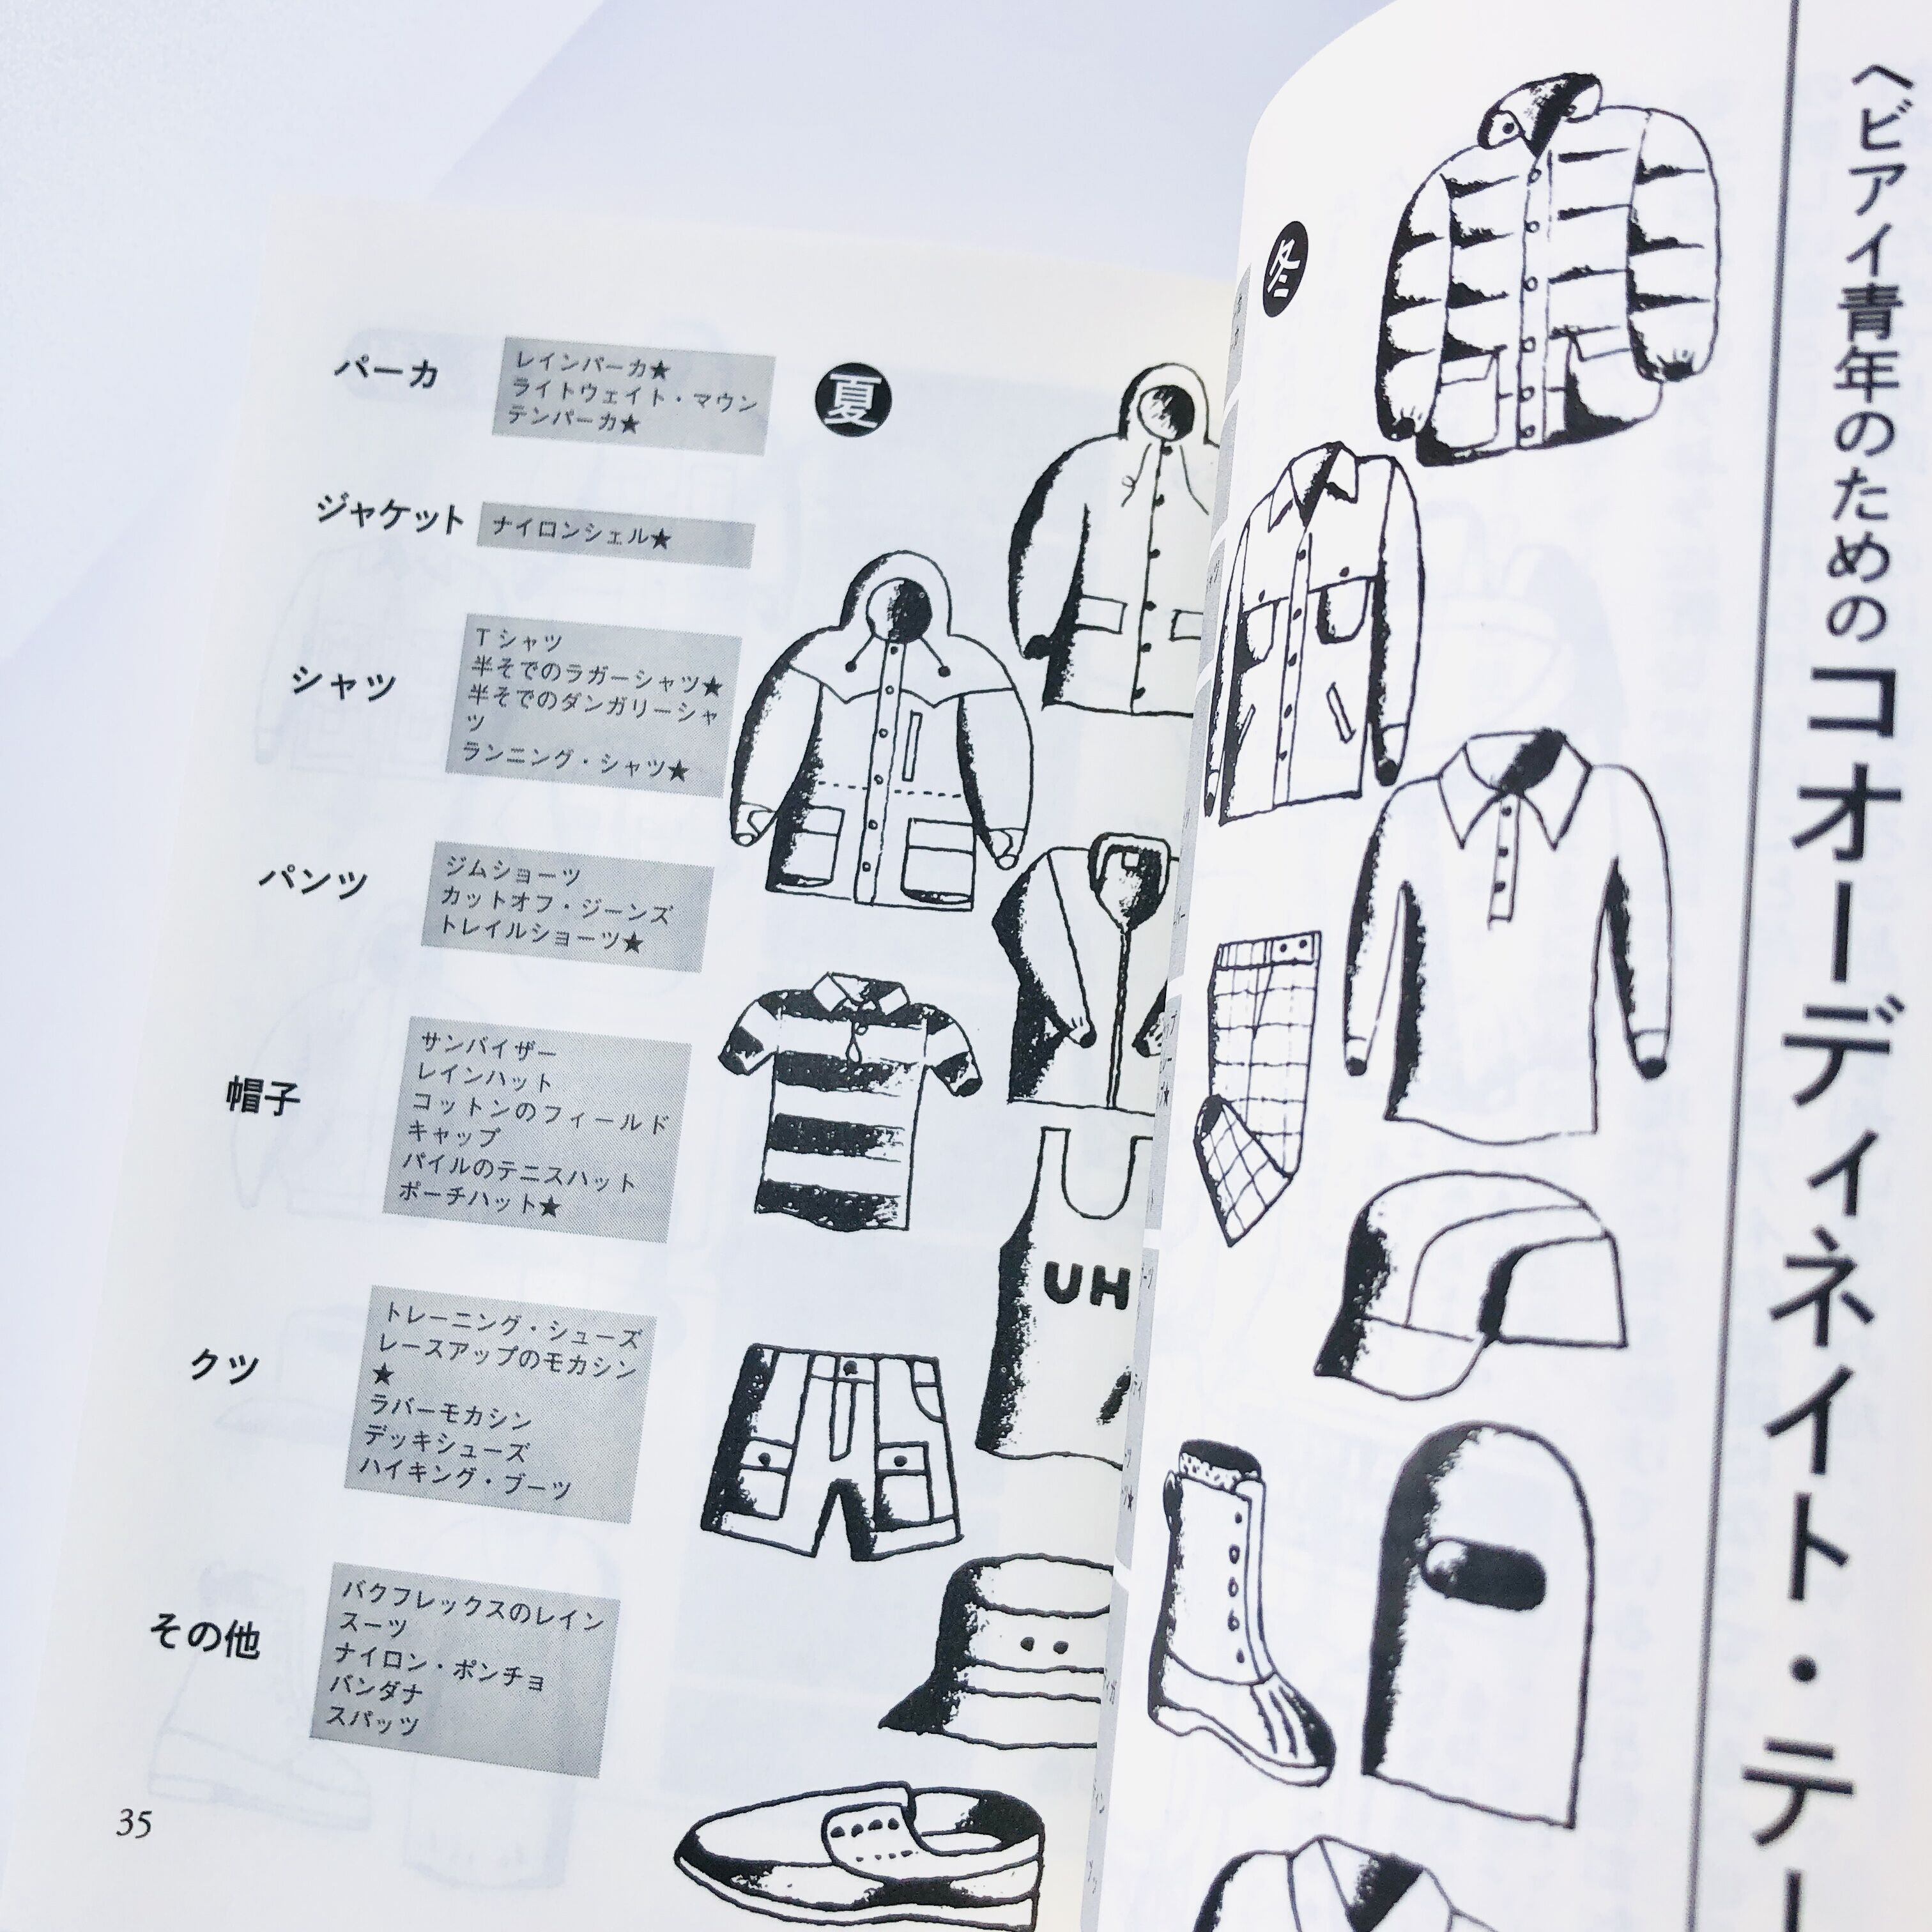 ヘビアイ青年のためのコオーディネイト・テ
冬
夏
パーカ
レインパーカ★
ライトウェイト・マウン
テンパーカ★
ジャケット
ナイロンシェル★
シャツ
Tシャツ
半そでのラガーシャツ★
半そでのダンガリーシャ
ツ
ランニング・シャツ★
パンツ
ジムショーツ
カットオフ・ジーンズ
トレイルショーツ★
帽子
サンバイザー
レインハット
コットンのフィールド
キャップ
パイルのテニスハット
ポーチハット★
クツ
トレーニング・シューズ
レースアップのモカシン
★
ラバーモカシン
デッキシューズ
ハイキング・ブーツ
その他
バクフレックスのレイン
スーツ
ナイロン・ポンチョ
バンダナ
スパッツ
UH
35